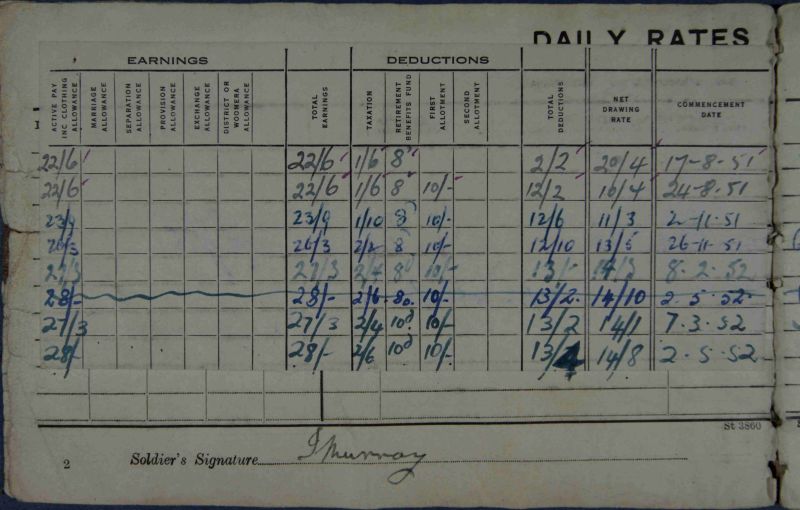 DAILY RATES
EARNINGS DEDUCTIONS
ACTIVE PAY INC CLOTHING ALLOWANCE MARRIAGE ALLOWANCE SEPARATION ALLOWANCE PROVISION ALLOWANCE EXCHANGE ALLOWANCE DISTRICT OR WOOMERA ALLOWANCE TOTAL EARNINGS TAXATION RETIREMENT BENEFITS FUND FIRST ALLOTMENT SECOND ALLOTMENT TOTAL DEDUCTIONS NET DRAWING RATE COMMENCEMENT DATE
22/6 22/6 1/6 8 2/2 20/4 17-8-51
22/6 22/6 1/6 8 10/- 12/2 10/4 24-8-51
23/9 23/9 1/10 8 10/- 12/6 11/3 2-11-51
26/3 26/3 2/2 8 10/- 12/10 13/5 26-11-51
27/3 27/3 2/4 8 10/- 13/- 14/3 8.2.52
28/- 28/- 2/6 8 10/- 13/2 14/10 2.5.52
27/3 27/3 2/4 10d 10/- 13/2 14/1 7.3.52
28/- 28/- 2/6 10d 10/- 13/4 14/8 2.5.52
St 3860
2 Soldier's Signature Murray